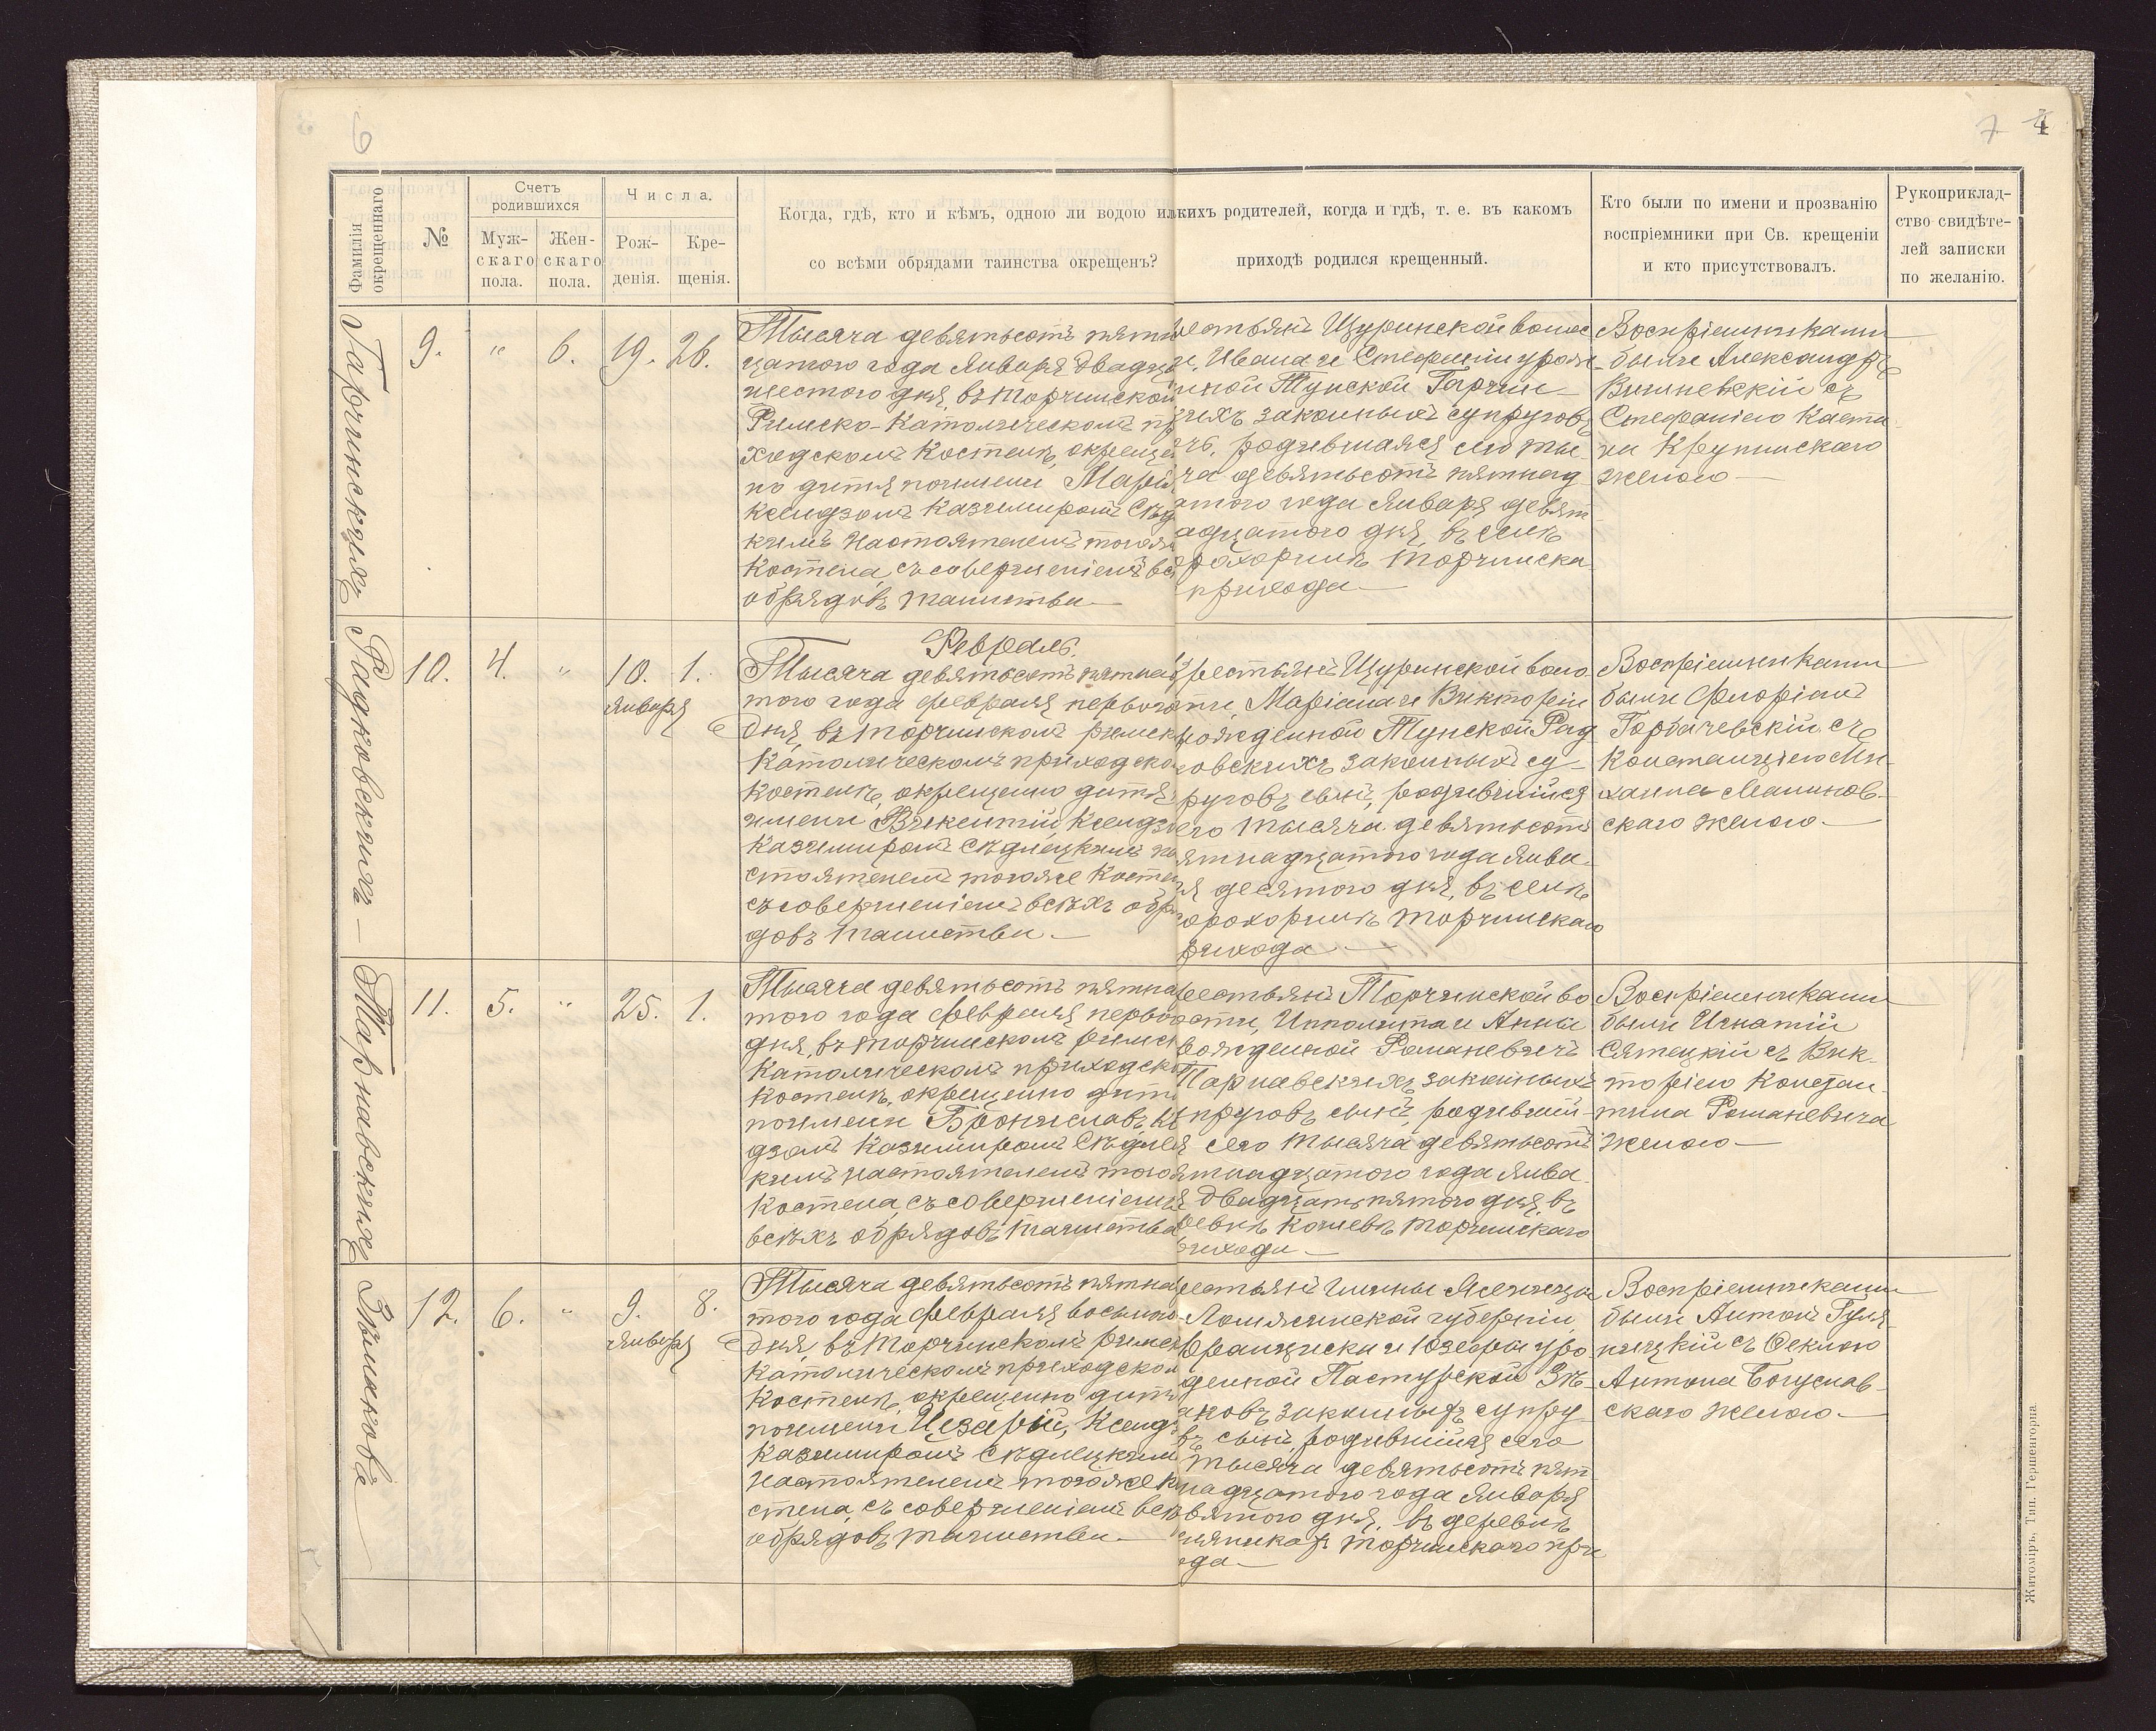 6
7
4
Фамилія окрещеннаго
№
Счетъ родившихся
Муж-
скаго
пола.
Жен-
скаго
пола.
Числа.
Рож-
денія.
Кре-
щенія.
Когда, гдѣ, кто и кѣмъ, одною ли водою ил
со всѣми обрядами таинства окрещенъ?
кихъ родителей, когда и гдѣ, т. е. въ какомъ
приходѣ родился крещенный.
Кто были по имени и прозванію
воспріемники при Св. крещеніи
и кто присутствовалъ.
Рукоприклад-
ство свидѣте-
лей записки
по желанію.
9.
"
6.
19.
26.
Тысяча девятьсотъ пятн
цатого года Января двадца
шестого дня, въ Торчинском
Римско-Католическомъ пр
ходскомъ Костелѣ, окреще
но дитя поимени Марія
Ксендзомъ Казимиромъ Сѣд
кимъ Настоятелемъ тогож
Костела, съ совершеніемъ вс
обрядовъ таинства
рестьянъ Щуринской волос
Ивана и Стефаніи урож
нной Тунской Гарчин
скихъ законныхъ супруговъ
родившаяся сего тыс
ча девятьсотъ пятнад
атого года Января девят
адцатого дня, въ селѣ
рохоринѣ Торчинска
прихода
Воспріемниками
были Александръ
Вишневскій съ
Стефаніею
Крупинскаго
женою
Февраль.
10.
4.
"
10.
Января
1.
Тысяча девятьсотъ пятна
того года февраля первого
дня, въ Торчинскомъ римск
Католическомъ приходско
Костелѣ, окрещено дитя
имени Викентій, Ксендзо
Казимиромъ Сѣдлецкимъ на
стоятелемъ тогоже Костел
съ совершеніемъ всѣхъ обр
довъ таинства
рестьянъ Щуринской воло
сти, Маріана и Викторіи
рожденной Тунской Рад
ковскихъ законныхъ су
пруговъ сынъ, родившійся
его тысяча девятьсотъ
ятнадцатого года Янва
я десятого дня, въ селѣ
орохоринѣ Торчинскаго
рихода
Воспріемниками
были Флоріанъ
Горбачевскій съ
Констанціею Ми-
хаила Малинов-
скаго женою
11.
5.
"
25.
1.
Тысяча девятьсотъ пятна
того года февраля первого
дня, въ Торчинскомъ римск
Католическомъ приходско
Костелѣ, окрещено дитя
поимени Брониславъ, Ксе
дзомъ Казимиромъ Сѣдлец
кимъ настоятелемъ того
Костела, съ совершеніемъ
всѣхъ обрядовъ таинства
рестьянъ Торчинской во
ости, Ипполита и Анны
рожденной Романевичъ
Тарнавскихъ законныхъ
пруговъ сынъ, родившій
я сего тысяча девятьсотъ
ятнадцатого года Янва
двадцать пятого дня, въ
ревнѣ Кошевѣ Торчинскаго
рихода
Воспріемниками
были Игнатій
Сятецкій съ Вик-
торіею Констан
тина Романевича
женою
12.
6.
"
9.
Января
8.
Тысяча девятьсотъ пятна
того года февраля восьмого
дня, въ Торчинскомъ римск
Католическомъ приходском
Костелѣ, окрещено дитя
поимени Цезарій, Ксендз
Казимиромъ Сѣдлецкимъ
Настоятелемъ тогоже К
стела, съ совершеніемъ всѣх
обрядовъ таинства
рестьянъ гмины
Ломжинской губерніи,
Франциска и Юзефы уро
денной Пастурской Зѣ
аковъ законныхъ супру
въ сынъ, родившійся сего
тысяча девятьсотъ пят
надцатого года Января
вятого дня, въ деревнѣ
Торчинскаго при
ода
Воспріемниками
были Антонъ
съ Феклою
Антона Богуслав
скаго женою
Гарчинскихъ
Радковскихъ
Тарнавскихъ
Зѣмаковъ
Житоміръ, Тип. Гершенгорна